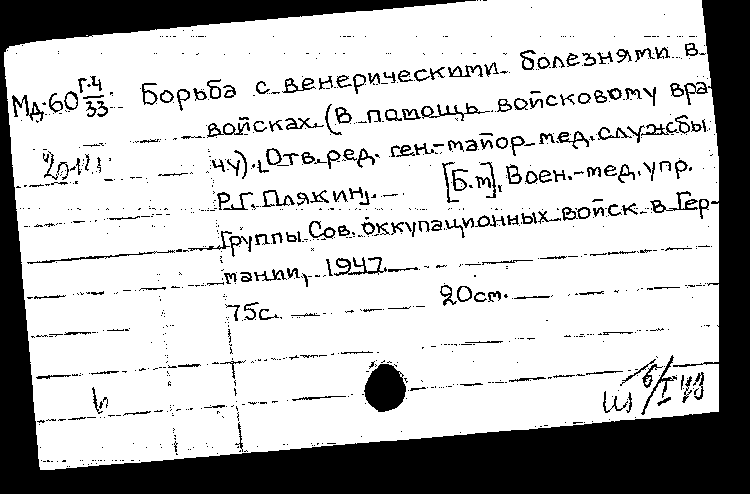 Мд-60 Г-4/33 Борьба с венерическими болезнями в
войсках. (В помощь войсковому вра-
чу). [Отв. ред. ген.-майор мед. службы
Р.Г. Плякин].— [Б.m], Воен.-мед. упр.
Группы Сов. оккупационных войск в Гер-
мании, 1947.
75с. — 20см.
6/I 49